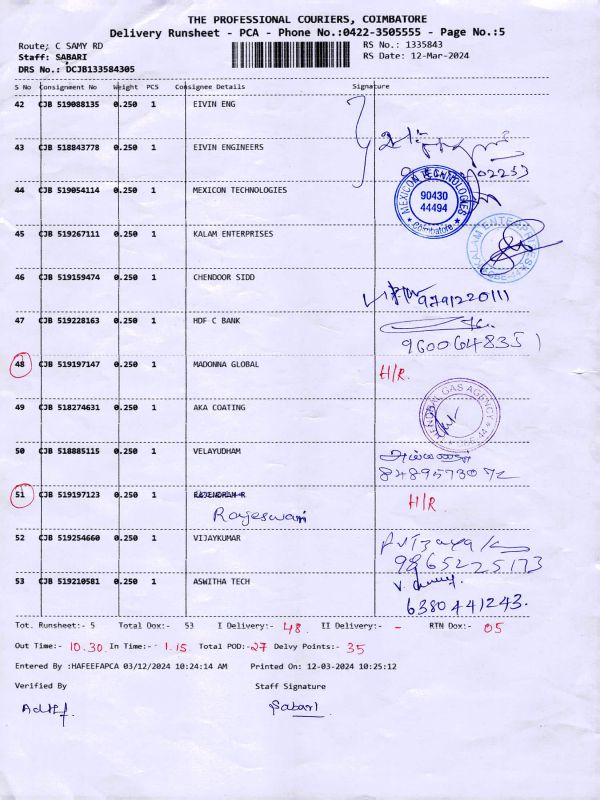 THE PROFESSIONAL COURIERS, COIMBATORE
Delivery Runsheet - PCA - Phone No.:0422-3505555 - Page No.:5
Route: C SAMY RD RS No.: 1335843
Staff: SABARI RS Date: 12-Mar-2024
DRS No.: DCJB133584305
S No Consignment No Weight PCS Consignee Details Signature
42 CJB 519088135 0.250 1 EIVIN ENG
43 CJB 518843778 0.250 1 EIVIN ENGINEERS
44 CJB 519054114 0.250 1 MEXICON TECHNOLOGIES MEXICON TECHNOLOGIES 90430 44494 Coimbatore
45 CJB 519267111 0.250 1 KALAM ENTERPRISES KALAM ENTERPRISES
46 CJB 519159474 0.250 1 CHENDOOR SIDD 9791220111
47 CJB 519228163 0.250 1 HDF C BANK 9600648351
48 CJB 519197147 0.250 1 MADONNA GLOBAL H/R.
49 CJB 518274631 0.250 1 AKA COATING GAS AGENCY
50 CJB 518885115 0.250 1 VELAYUDHAM 8489573072
51 CJB 519197123 0.250 1 RAJENDRAN R H/R.
Rajeswari
52 CJB 519254660 0.250 1 VIJAYKUMAR 9865225173
53 CJB 519210581 0.250 1 ASWITHA TECH 6380441243.
Tot. Runsheet:- 5 Total Dox:- 53 I Delivery:- 48. II Delivery:- - RTN Dox:- 05
Out Time:- 10.30 In Time:- 1.15. Total POD:- 27 Delvy Points:- 35
Entered By :HAFEEFAPCA 03/12/2024 10:24:14 AM Printed On: 12-03-2024 10:25:12
Verified By Staff Signature
Sabari